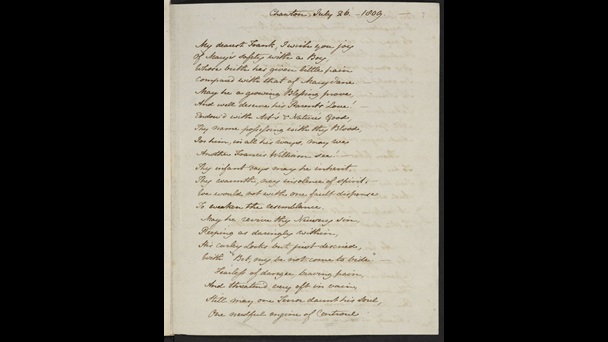 Chawton, July 26. - 1809.
My dearest Frank, I wish you joy
Of Mary's safety with a Boy,
Whose birth has given little pain
Compared with that of Mary Jane.
May he a growing Blessing prove,
And well deserve his Parents' Love! -
Endow'd with Art's & Nature's Good,
Thy name possessing with thy Blood,
In him, in all his ways, may we
Another Francis William see! -
Thy infant days may he inherit,
Thy warmth, nay insolence of spirit;
We would not with one fault dispense
To weaken the resemblance.
May he revive thy Nursery sin,
Peeping as daringly within,
His curley Locks but just descried,
With "Bet, my be not come to bide." -
Fearless of danger, braving pain,
And threaten'd very oft in vain,
Still may one Terror daunt his Soul,
One needful engine of Controul